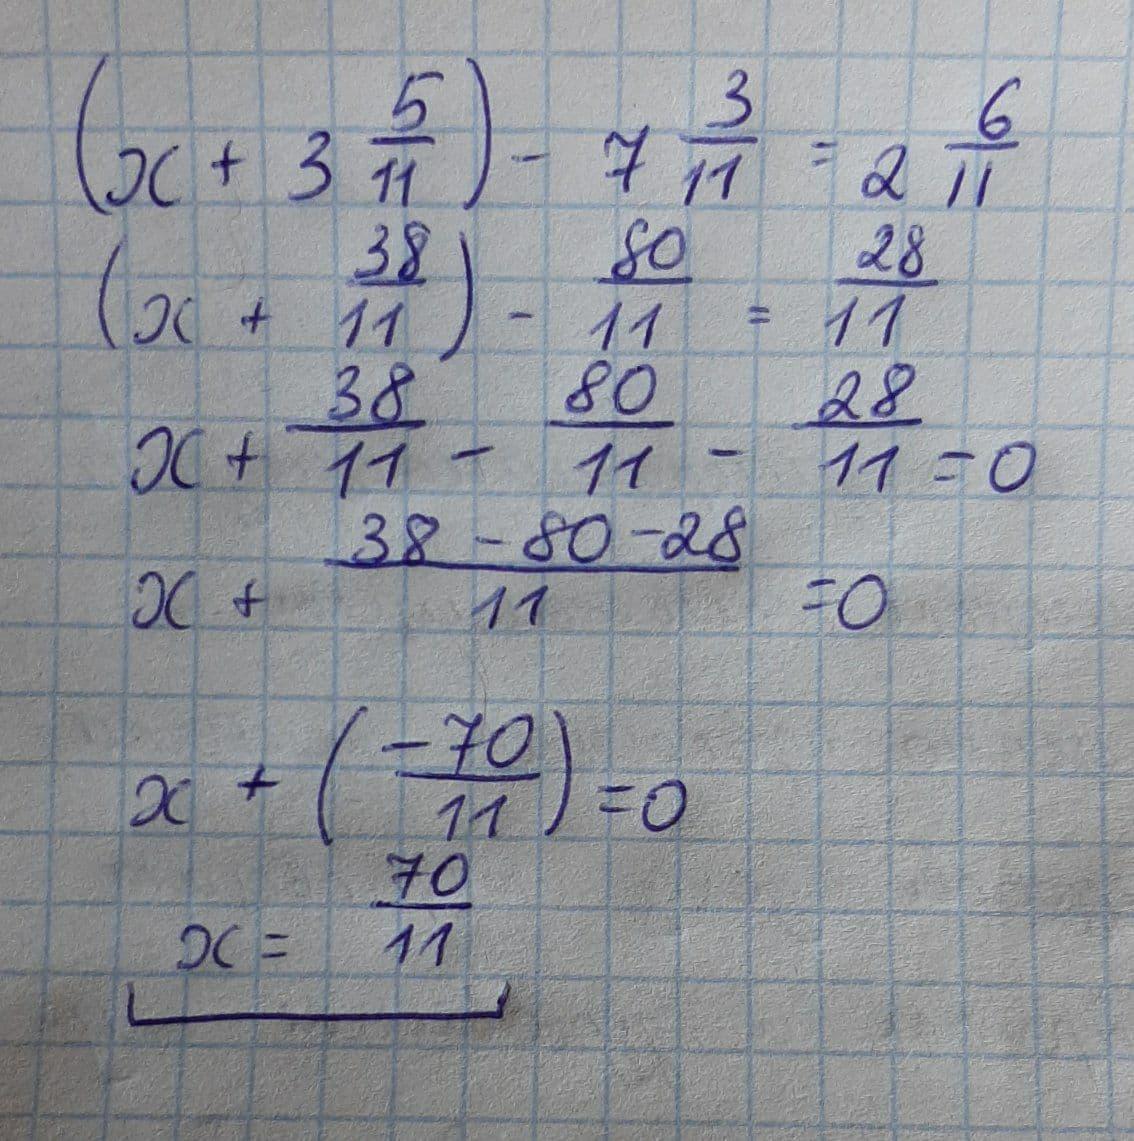 (x + 3 5/11) - 7 3/11 = 2 6/11
(x + 38/11) - 80/11 = 28/11
x + 38/11 - 80/11 - 28/11 = 0
x + (38 - 80 - 28)/11 = 0
x + (-70/11) = 0
x = 70/11